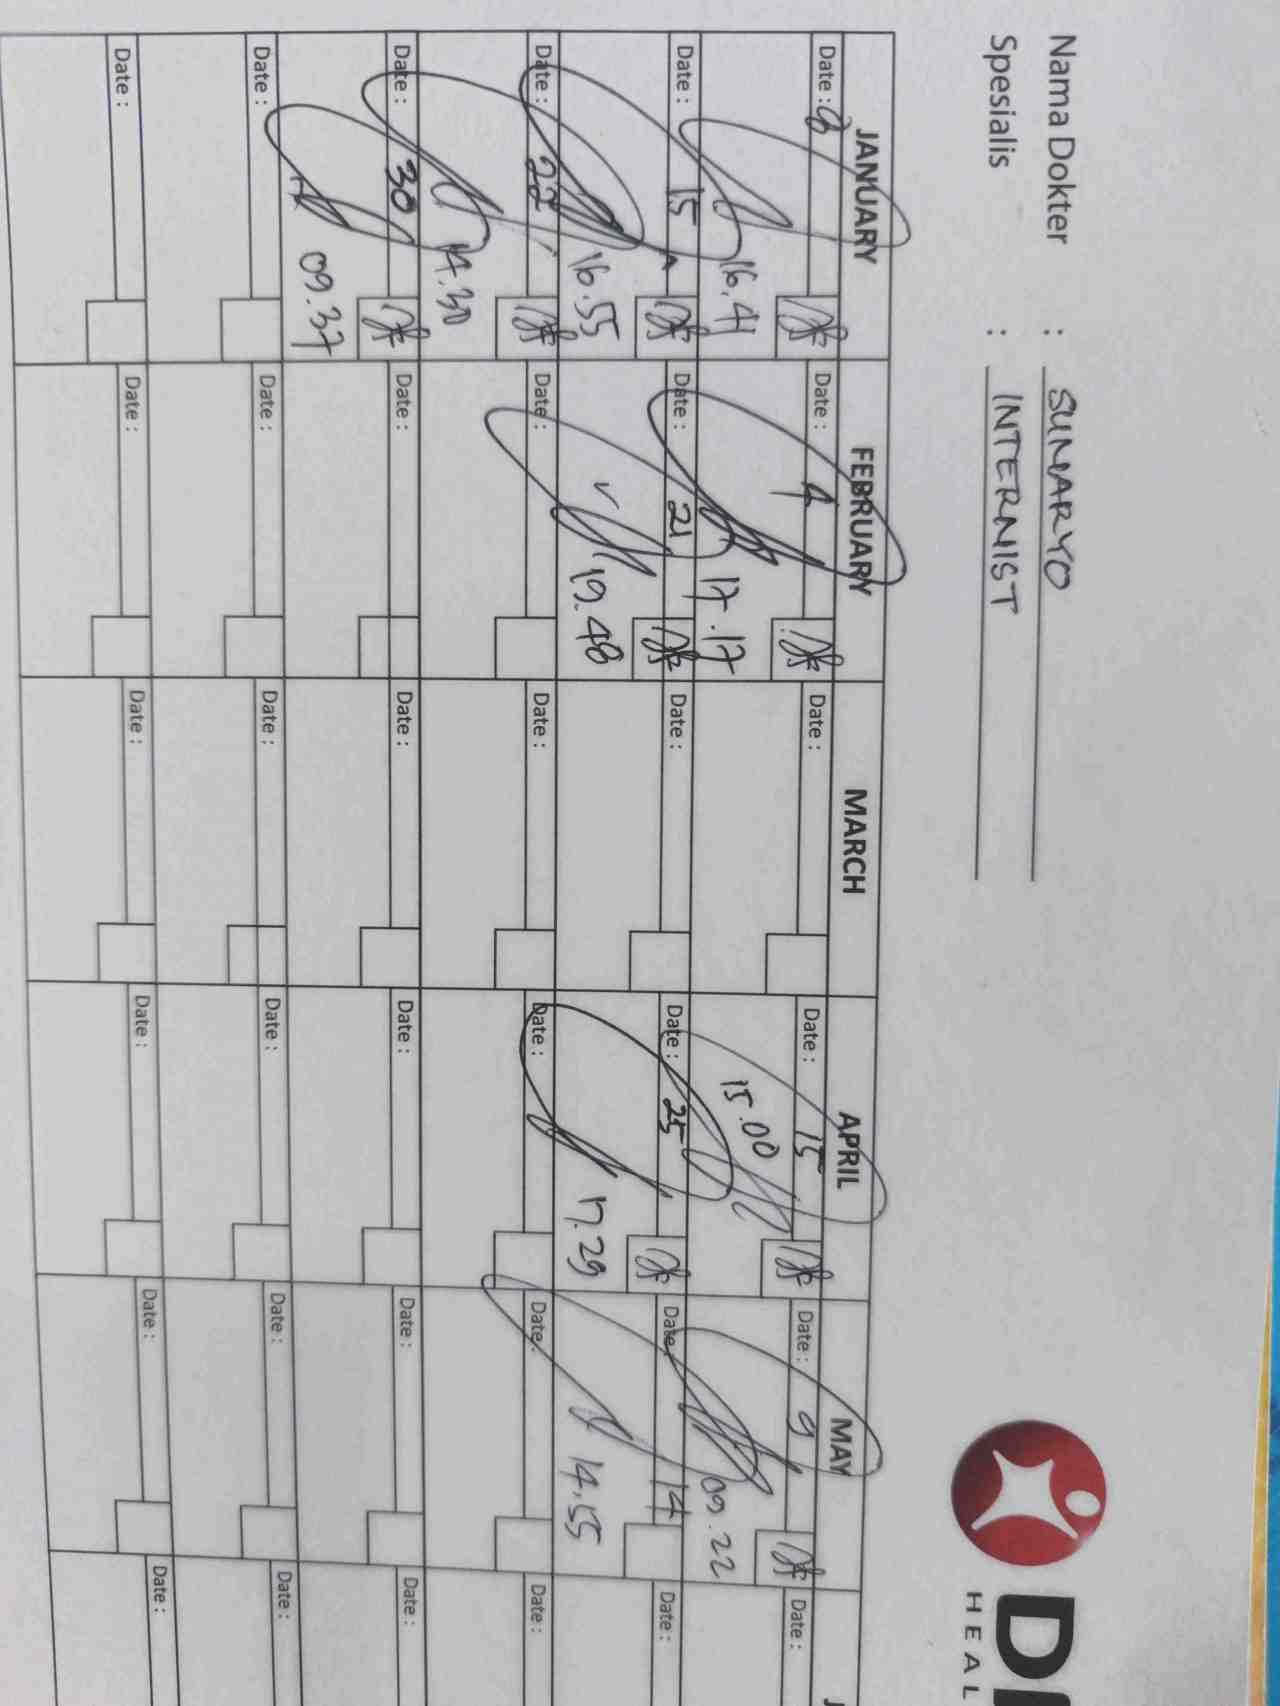 Nama Dokter : SUMARYO
Spesialis : INTERNIST
DI
HEAL
JANUARY FEBRUARY MARCH APRIL MAY J
Date : 8 Date : 4 Date : Date : 15 Date : 9 Date :
16.41 17.17 15.00 09.22
Date : 15 Date : 21 Date : Date : 25 Date : 14 Date :
16.55 19.48 17.29 14.55
Date : 22 Date : Date : Date : Date : Date :
14.30
Date : 30 Date : Date : Date : Date : Date :
09.37
Date : Date : Date : Date : Date : Date :
Date : Date : Date : Date : Date : Date :